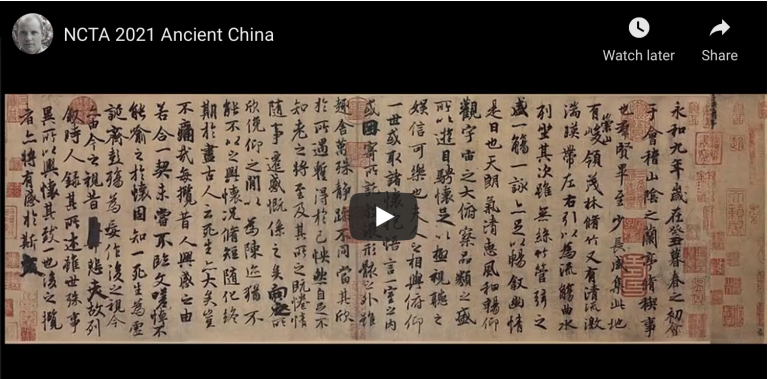 NCTA 2021 Ancient China
Watch later
Share
永和九年歲在癸丑暮春之初會
于會稽山陰之蘭亭脩稧事
也群賢畢至少長咸集此地
有崇山峻領茂林脩竹又有清流激
湍暎帶左右引以為流觴曲水
列坐其次雖無絲竹管弦之
盛一觴一詠亦足以暢敘幽情
是日也天朗氣清惠風和暢仰
觀宇宙之大俯察品類之盛
所以遊目騁懷足以極視聽之
娛信可樂也夫人之相與俯仰
一世或取諸懷抱悟言一室之內
或因寄所託放浪形骸之外雖
趣舍萬殊靜躁不同當其欣
於所遇暫得於己怏然自足不
知老之將至及其所之既惓情
隨事遷感慨係之矣向之所
欣俛仰之閒以為陳迹猶不
能不以之興懷況脩短隨化終
期於盡古人云死生亦大矣豈
不痛哉每攬昔人興感之由
若合一契未嘗不臨文嗟悼不
能喻之於懷固知一死生為虛
誕齊彭殤為妄作後之視今
亦由今之視昔悲夫故列
敘時人錄其所述雖世殊事
異所以興懷其致一也後之攬
者亦將有感於斯文